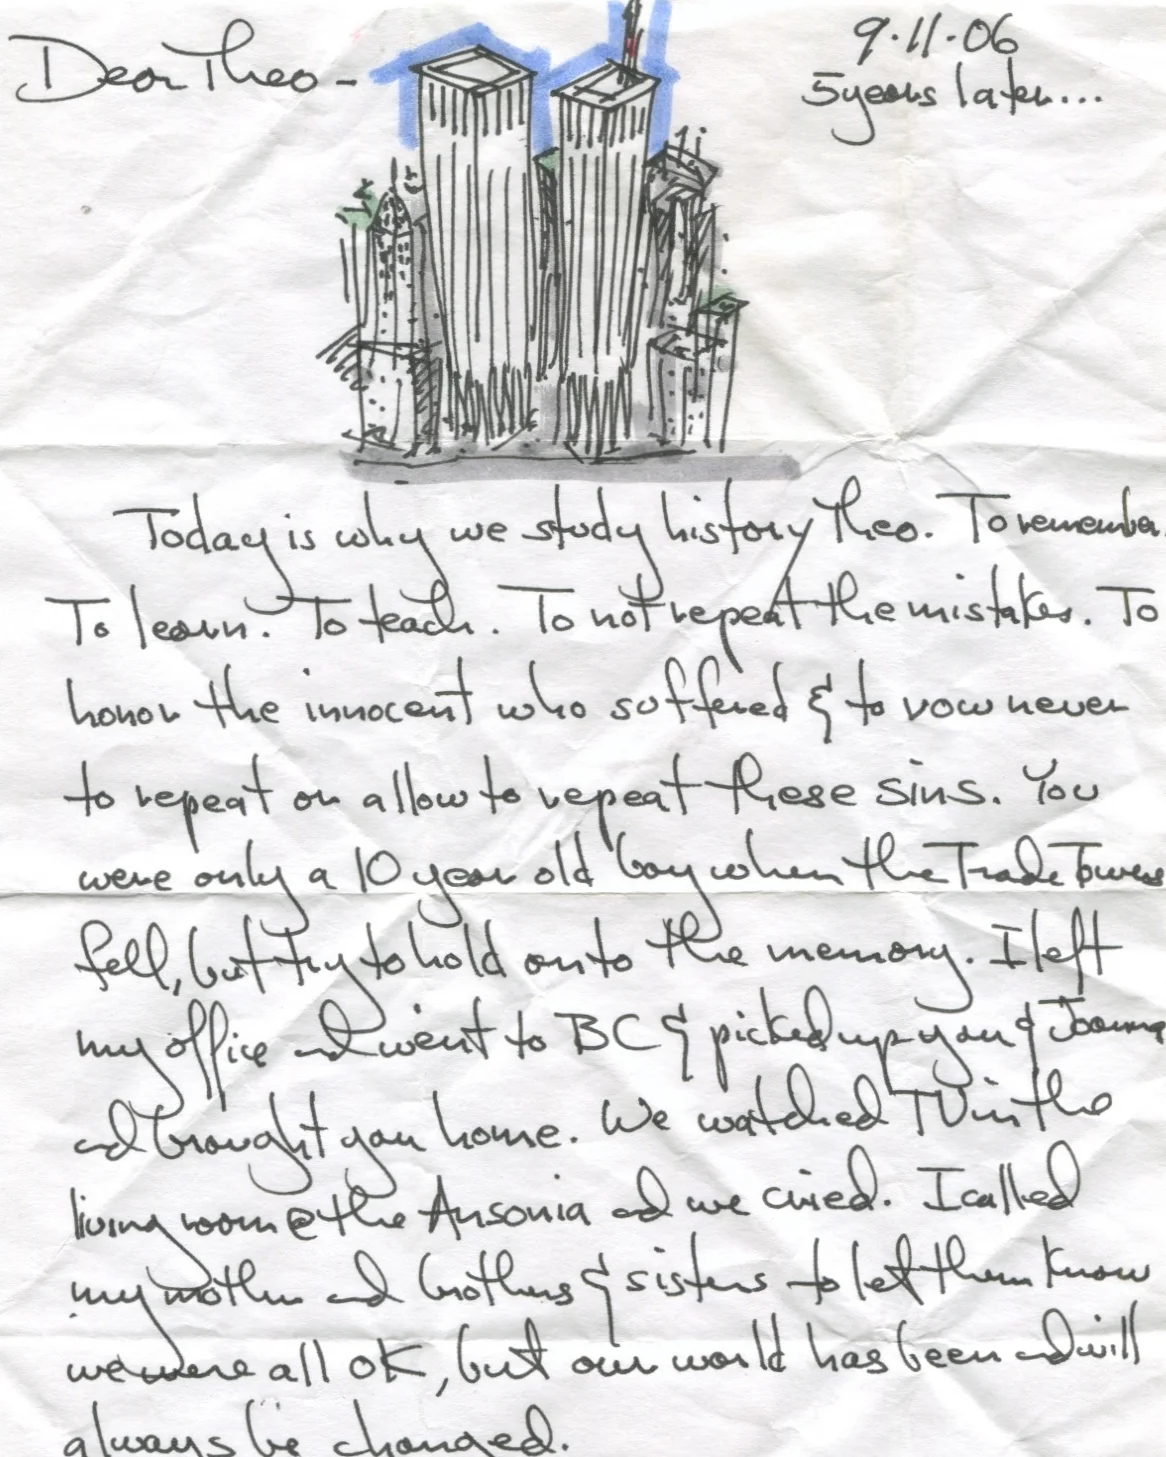 Dear Theo -
9.11.06
5 years later...
Today is why we study history Theo. To remember.
To learn. To teach. To not repeat the mistakes. To
honor the innocent who suffered & to vow never
to repeat or allow to repeat these sins. You
were only a 10 year old boy when the Trade Towers
fell, but try to hold onto the memory. I left
my office and went to BC & picked up you & Joanna
and brought you home. We watched TV in the
living room @ the Ansonia and we cried. I called
my mother and brothers & sisters to let them know
we were all OK, but our world has been and will
always be changed.